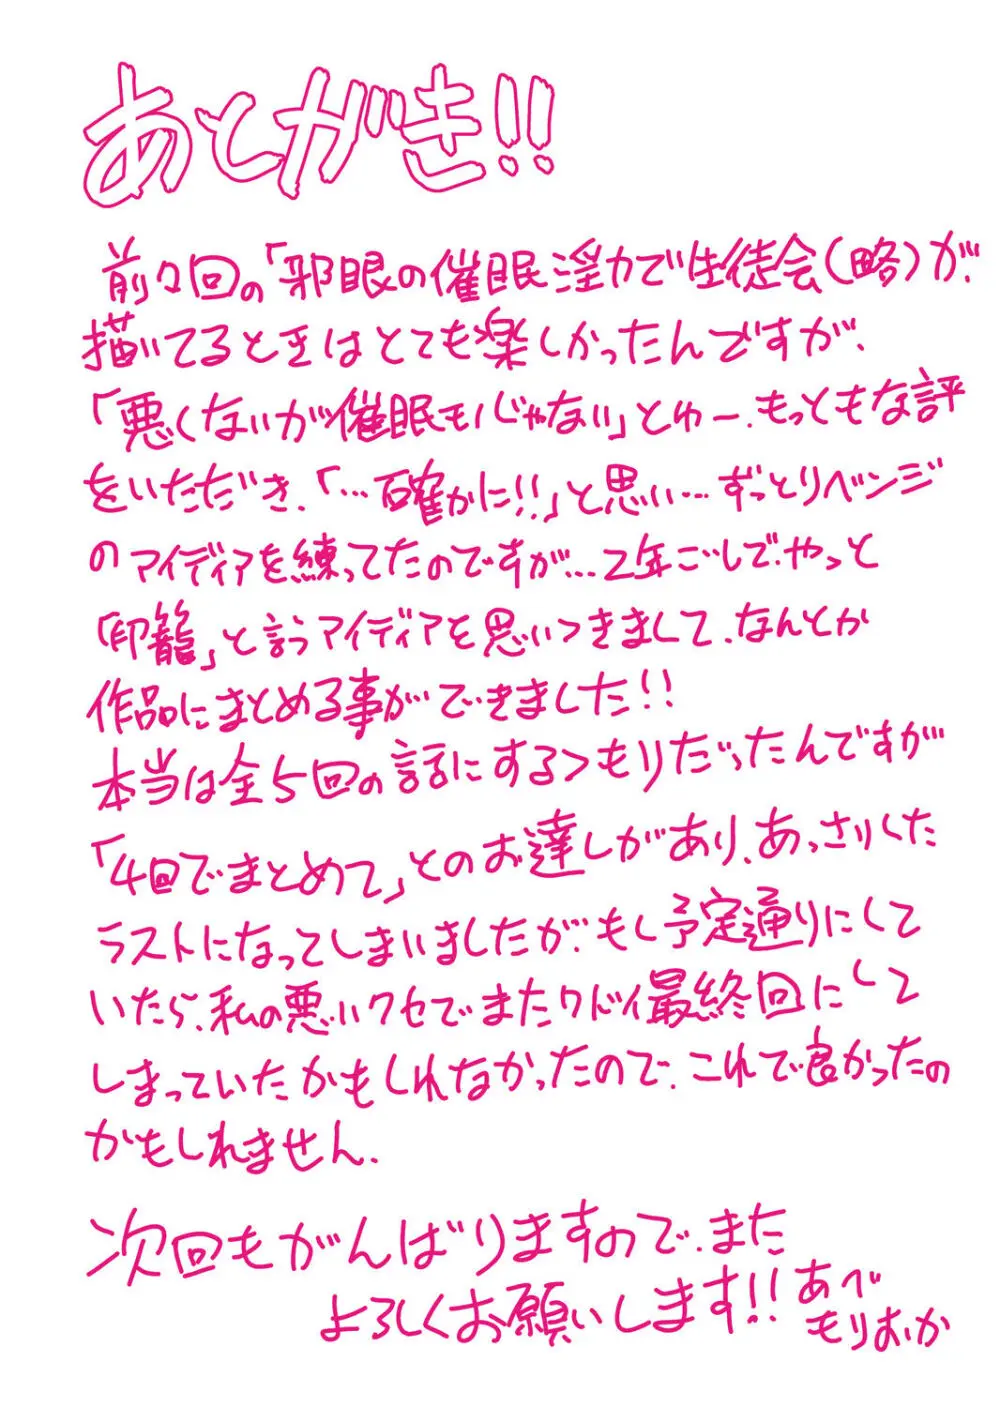 あとがき!!
前々回の「邪眼の催眠淫力で生徒会(略)が、
描いてるときはとても楽しかったんですが、
「悪くないが催眠モノじゃない」とゆー、もっともな評
をいただき、「…確かに!!」と思い…ずっとリベンジ
のアイディアを練ってたのですが…2年ごしで、やっと
「印籠」と言うアイディアを思いつきまして、なんとか
作品にまとめる事ができました!!
本当は全5回の話にするつもりだったんですが
「4回でまとめて」とのお達しがあり、あっさりした
ラストになってしまいましたが、もし予定通りにして
いたら、私の悪いクセでまたクドイ最終回にして
しまっていたかもしれなかったので、これで良かったの
かもしれません.
次回もがんばりますので、また
よろしくお願いします!!
あべ
もりおか